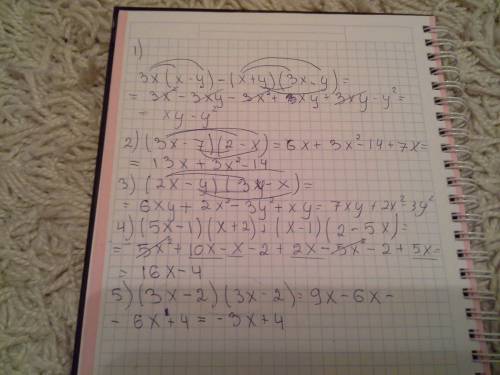 1)
3x(x-y)-(x+y)(3x-y)=
= 3x²-3xy-3x²+3xy-3xy-y²=
= xy-y²
2) (3x-7)(2-x)=6x+3x²-14+7x=
= 13x+3x²-14
3) (2x-y)(3y-x)=
= 6xy+2x²-3y²+xy=7xy+2x²-3y²
4) (5x-1)(x+2)+(x-1)(2-5x)=
= 5x²+10x-x-2+2x-5x²-2+5x=
= 16x-4
5) (3x-2)(3x-2)=9x-6x-
- 6x+4=-3x+4